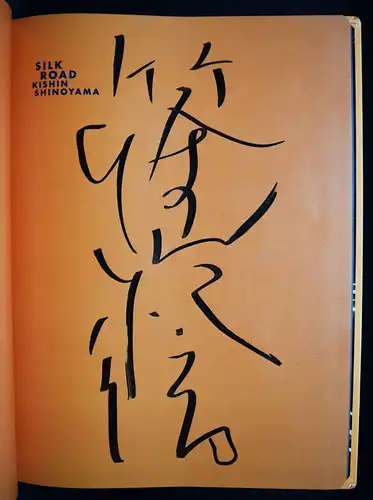 SILK
ROAD
KISHIN
SHINOYAMA
篠山紀信